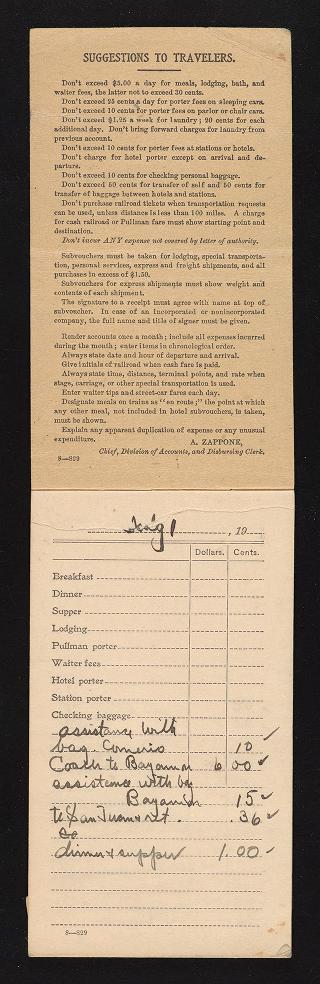 SUGGESTIONS TO TRAVELERS.
Don't exceed $5.00 a day for meals, lodging, bath, and
waiter fees, the latter not to exceed 30 cents.
Don't exceed 25 cents a day for porter fees on sleeping cars.
Don't exceed 10 cents for porter fees on parlor or chair cars.
Don't exceed $1.25 a week for laundry; 20 cents for each
additional day. Don't bring forward charges for laundry from
previous account.
Don't exceed 10 cents for porter fees at stations or hotels.
Don't charge for hotel porter except on arrival and de-
parture.
Don't exceed 10 cents for checking personal baggage.
Don't exceed 50 cents for transfer of self and 50 cents for
transfer of baggage between hotels and stations.
Don't purchase railroad tickets when transportation requests
can be used, unless distance is less than 100 miles. A charge
for cash railroad or Pullman fare must show starting point and
destination.
Don't incur ANY expense not covered by letter of authority.
Subvouchers must be taken for lodging, special transporta-
tion, personal services, express and freight shipments, and all
purchases in excess of $1.50.
Subvouchers for express shipments must show weight and
contents of each shipment.
The signature to a receipt must agree with name at top of
subvoucher. In case of an incorporated or nonincorporated
company, the full name and title of signer must be given.
Render accounts once a month; include all expenses incurred
during the month; enter items in chronological order.
Always state date and hour of departure and arrival.
Give initials of railroad when cash fare is paid.
Always state time, distance, terminal points, and rate when
stage, carriage, or other special transportation is used.
Enter waiter tips and street-car fares each day.
Designate meals on trains as "en route;" the point at which
any other meal, not included in hotel subvouchers, is taken,
must be shown.
Explain any apparent duplication of expense or any unusual
expenditure.
A. ZAPPONE,
Chief, Division of Accounts, and Disbursing Clerk.
8—829
, 19
Dollars. Cents.
Breakfast
Dinner
Supper
Lodging
Pullman porter
Waiter fees
Hotel porter
Station porter
Checking baggage
assistance with
bag. Comerio 10
Coach to Bayamon 6 00
assistance with bag
Bayamon 15
to San Juan & ret. .36
dinner & supper 1.00
8—829